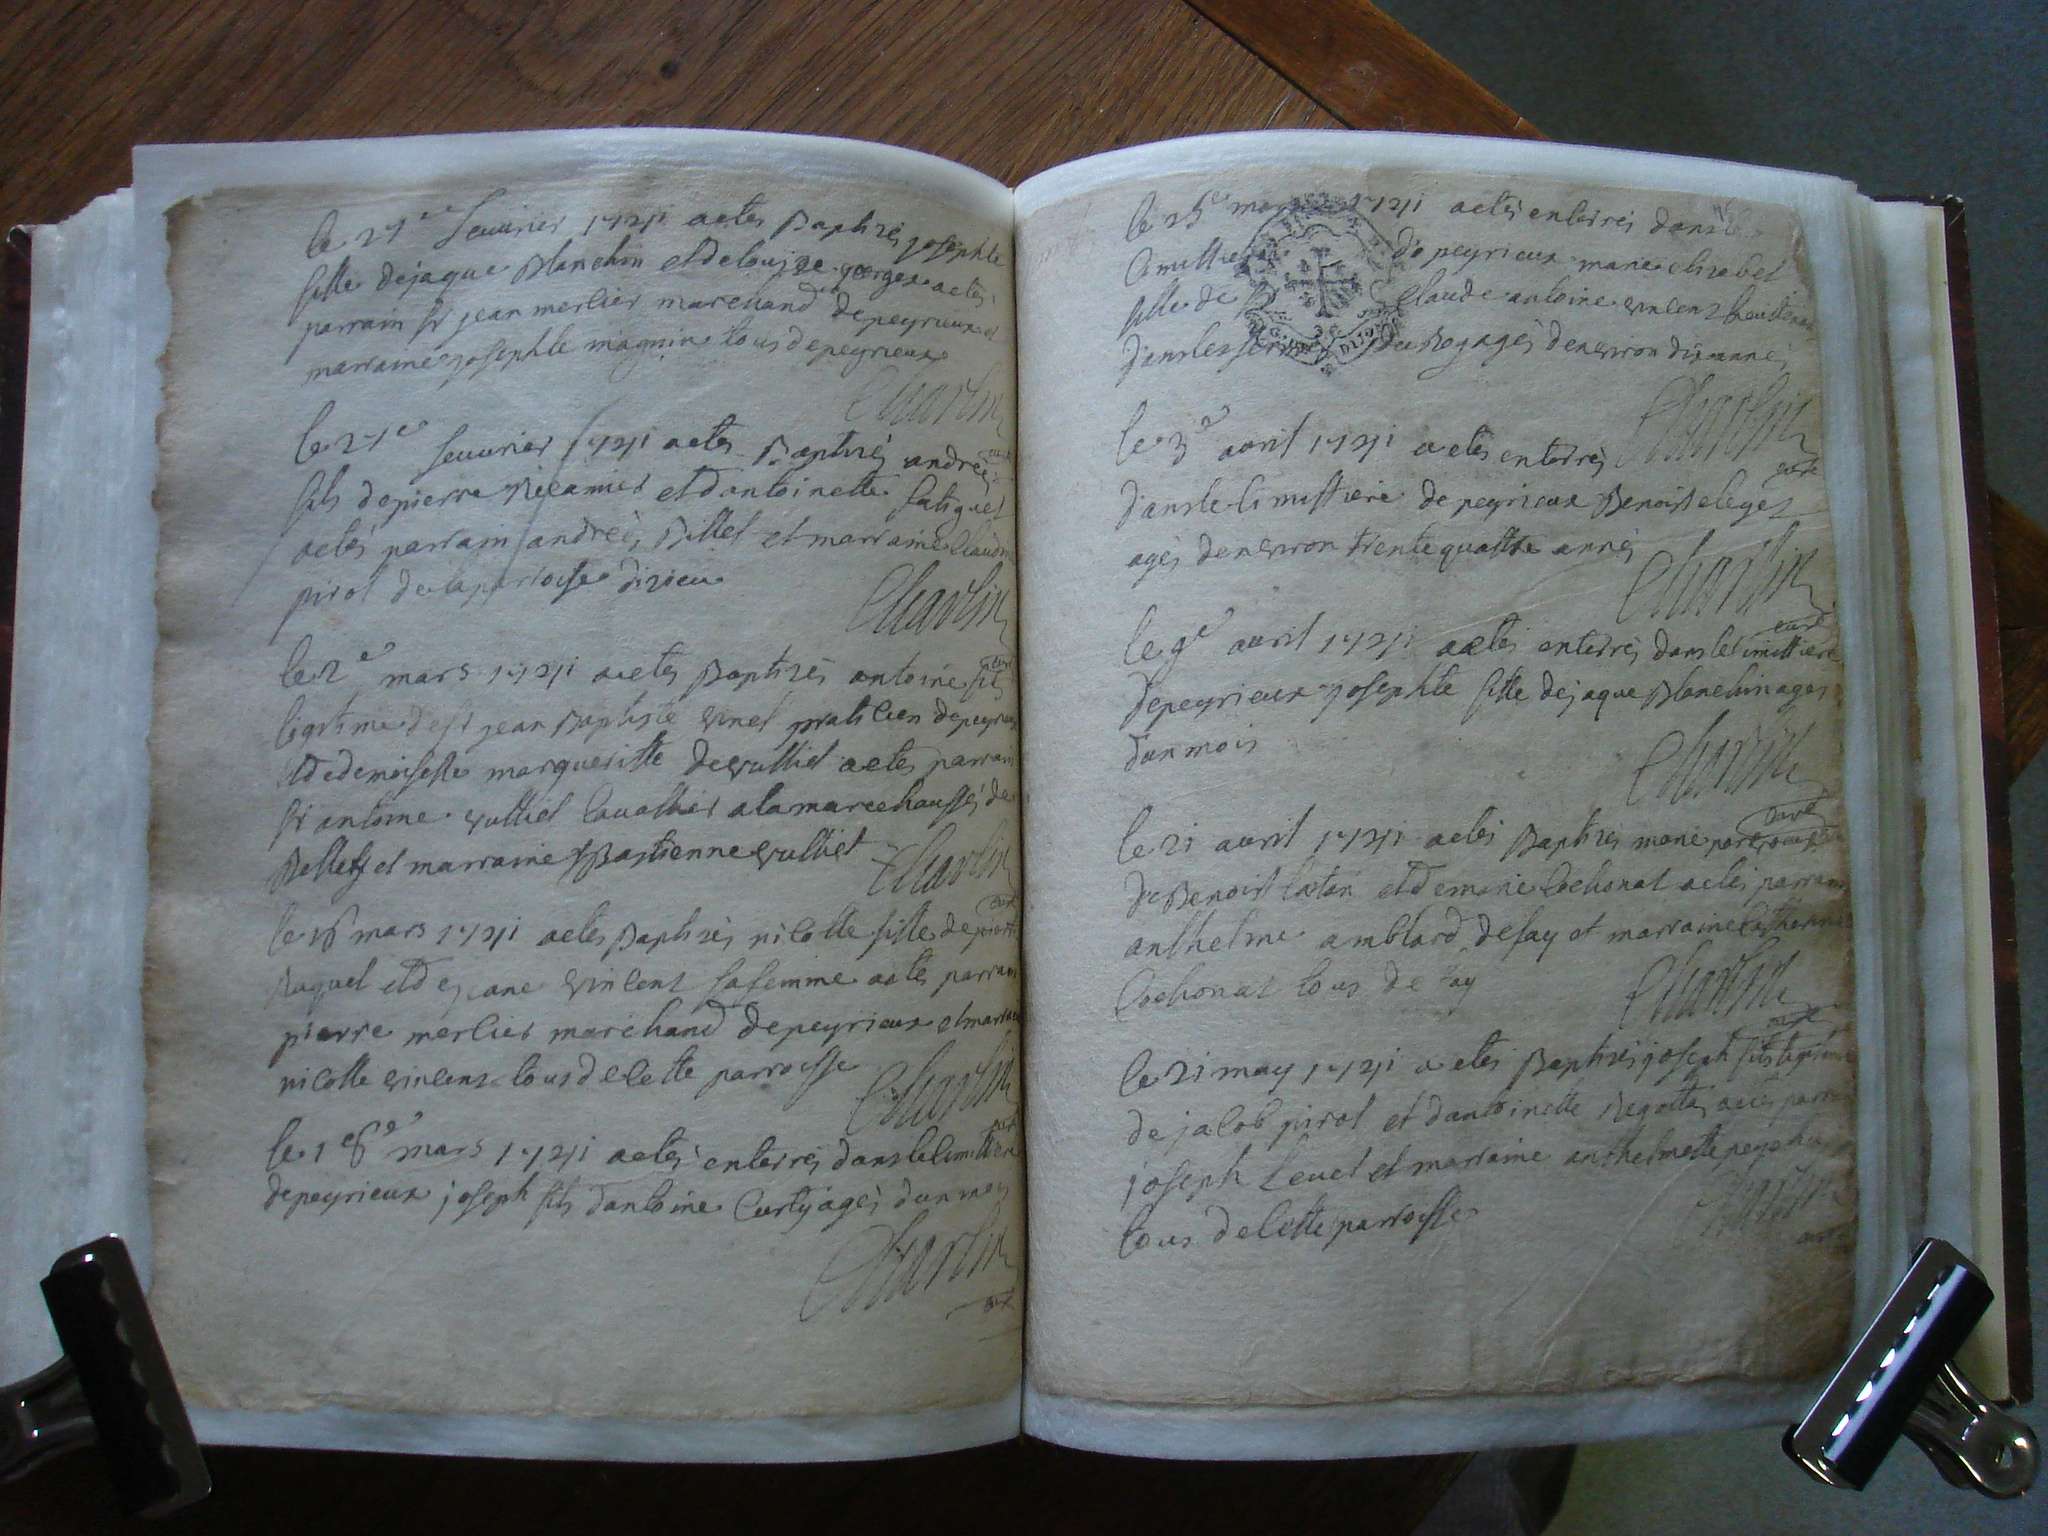 le 27e feuurier 1741 a etes Baptizes josephte
fille de jaque Blanchin et de louize george a etes
parrain sr jean merlier marchand de peyrieux et
marraine josephte magnin tous de peyrieux
Charlin
curé
le 27e feuurier 1741 a etes Baptizes andreé
fils de pierre Recamier et dantoinette
a etes parrain andreé Billet et marraine Claudine
pirot de la parroisse dizieu
Charlin
curé
le 2e mars 1741 a etes Baptizes antoine fils
legitime de sr jean Baptiste vinet praticien de peyrieux
et de demoiselle margueritte de vulliet a etes parrain
sr antoine vulliet Cauallier a la marechaussés de
Belley et marraine Bastienne vulliet
Charlin
curé
le 16 mars 1741 a etes Baptizes nicolle fille de pierre
Ruquet et de jeane vincent sa femme a etes parrain
pierre merlier marchand de peyrieux et marraine
nicolle vincent tous de cette parroisse
Charlin
curé
le 18e mars 1741 a etes enterrés dans le Cimittiere
de peyrieux joseph fils dantoine Curty agés dun mois
Charlin
curé
le 25e mars 1741 a etes enterrés dans le
Cimittiere de peyrieux marie elizabet
fille de Claude antoine vincent
dans les fermes du Roy agés denviron dix années
Charlin
curé
le 3e avril 1741 a etes enterrés
dans le Cimittiere de peyrieux Benoist
agés denviron trente quattre années
Charlin
curé
le 9e avril 1741 a etes enterrés dans le Cimittiere
de peyrieux josephte fille de jaque Blanchin agés
dun mois
Charlin
curé
le 21 avril 1741 a etes Baptizes marie
de Benoist et de marie Cochonat a etes parrain
anthelme amblard de fay et marraine Catherine
Cochonat tous de fay
Charlin
curé
le 21 may 1741 a etes Baptizes joseph fils legitime
de jacob pirot et dantoinette a etes parrain
joseph leuet et marraine anthelmette
tous de cette parroisse
Charlin
curé